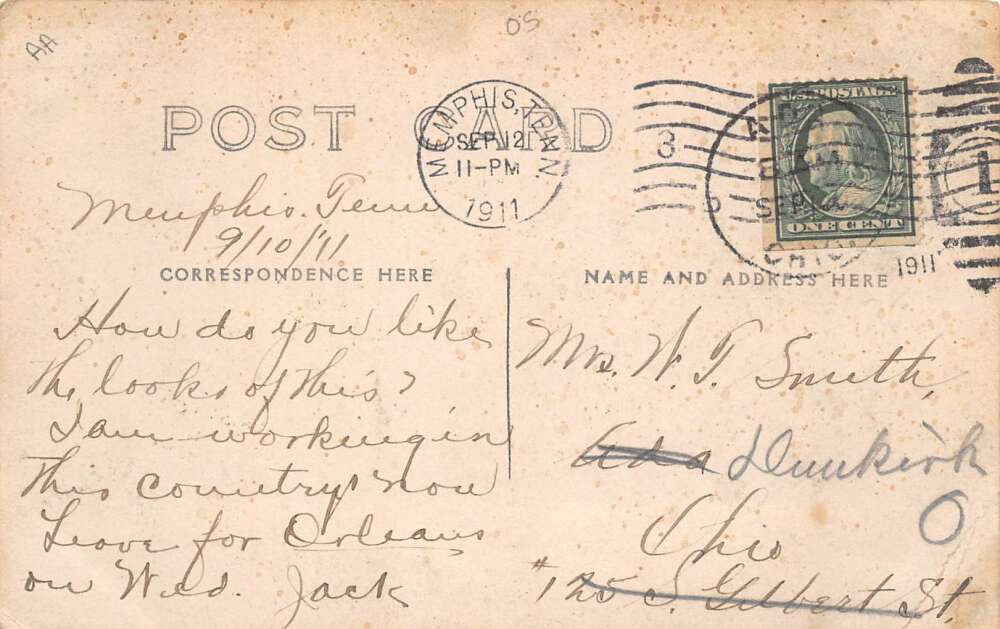 AA
OS
POST CARD
MEMPHIS, TENN
SEP 12
11-PM
1911
3
U.S. POSTAGE
ONE CENT
ADA
8 AM
SEP
OHIO
1911
1
Memphis. Tenn
9/10/'11
CORRESPONDENCE HERE
How do you like
the looks of this?
I am working in
this country now
Leave for Orleans
on Wed. Jack
NAME AND ADDRESS HERE
Mrs. W. T. Smith,
Ada Dunkirk
O
Ohio
#125 S. Gilbert St.